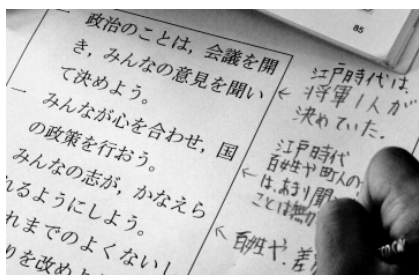 85
一 政治のことは，会議を開
き，みんなの意見を聞い
て決めよう。
一 みんなが心を合わせ，国
の政策を行おう。
みんなの志が，かなえら
れるようにしよう。
れまでのよくないし
りを改めよ
← 江戸時代は
将軍1人が
決めていた.
江戸時代
百姓や町人の
← は、あまり聞
ことは無
← 百姓や.差